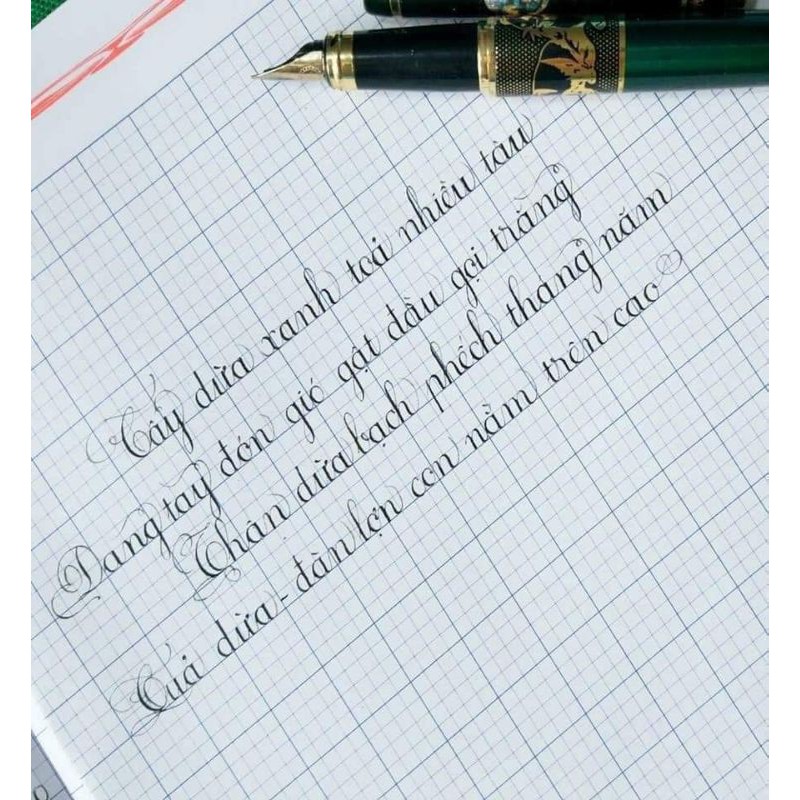 Cây dừa xanh toả nhiều tàu
Dang tay đón gió gật đầu gọi trăng
Thân dừa bạch phếch tháng năm
Quả dừa - đàn lợn con nằm trên cao